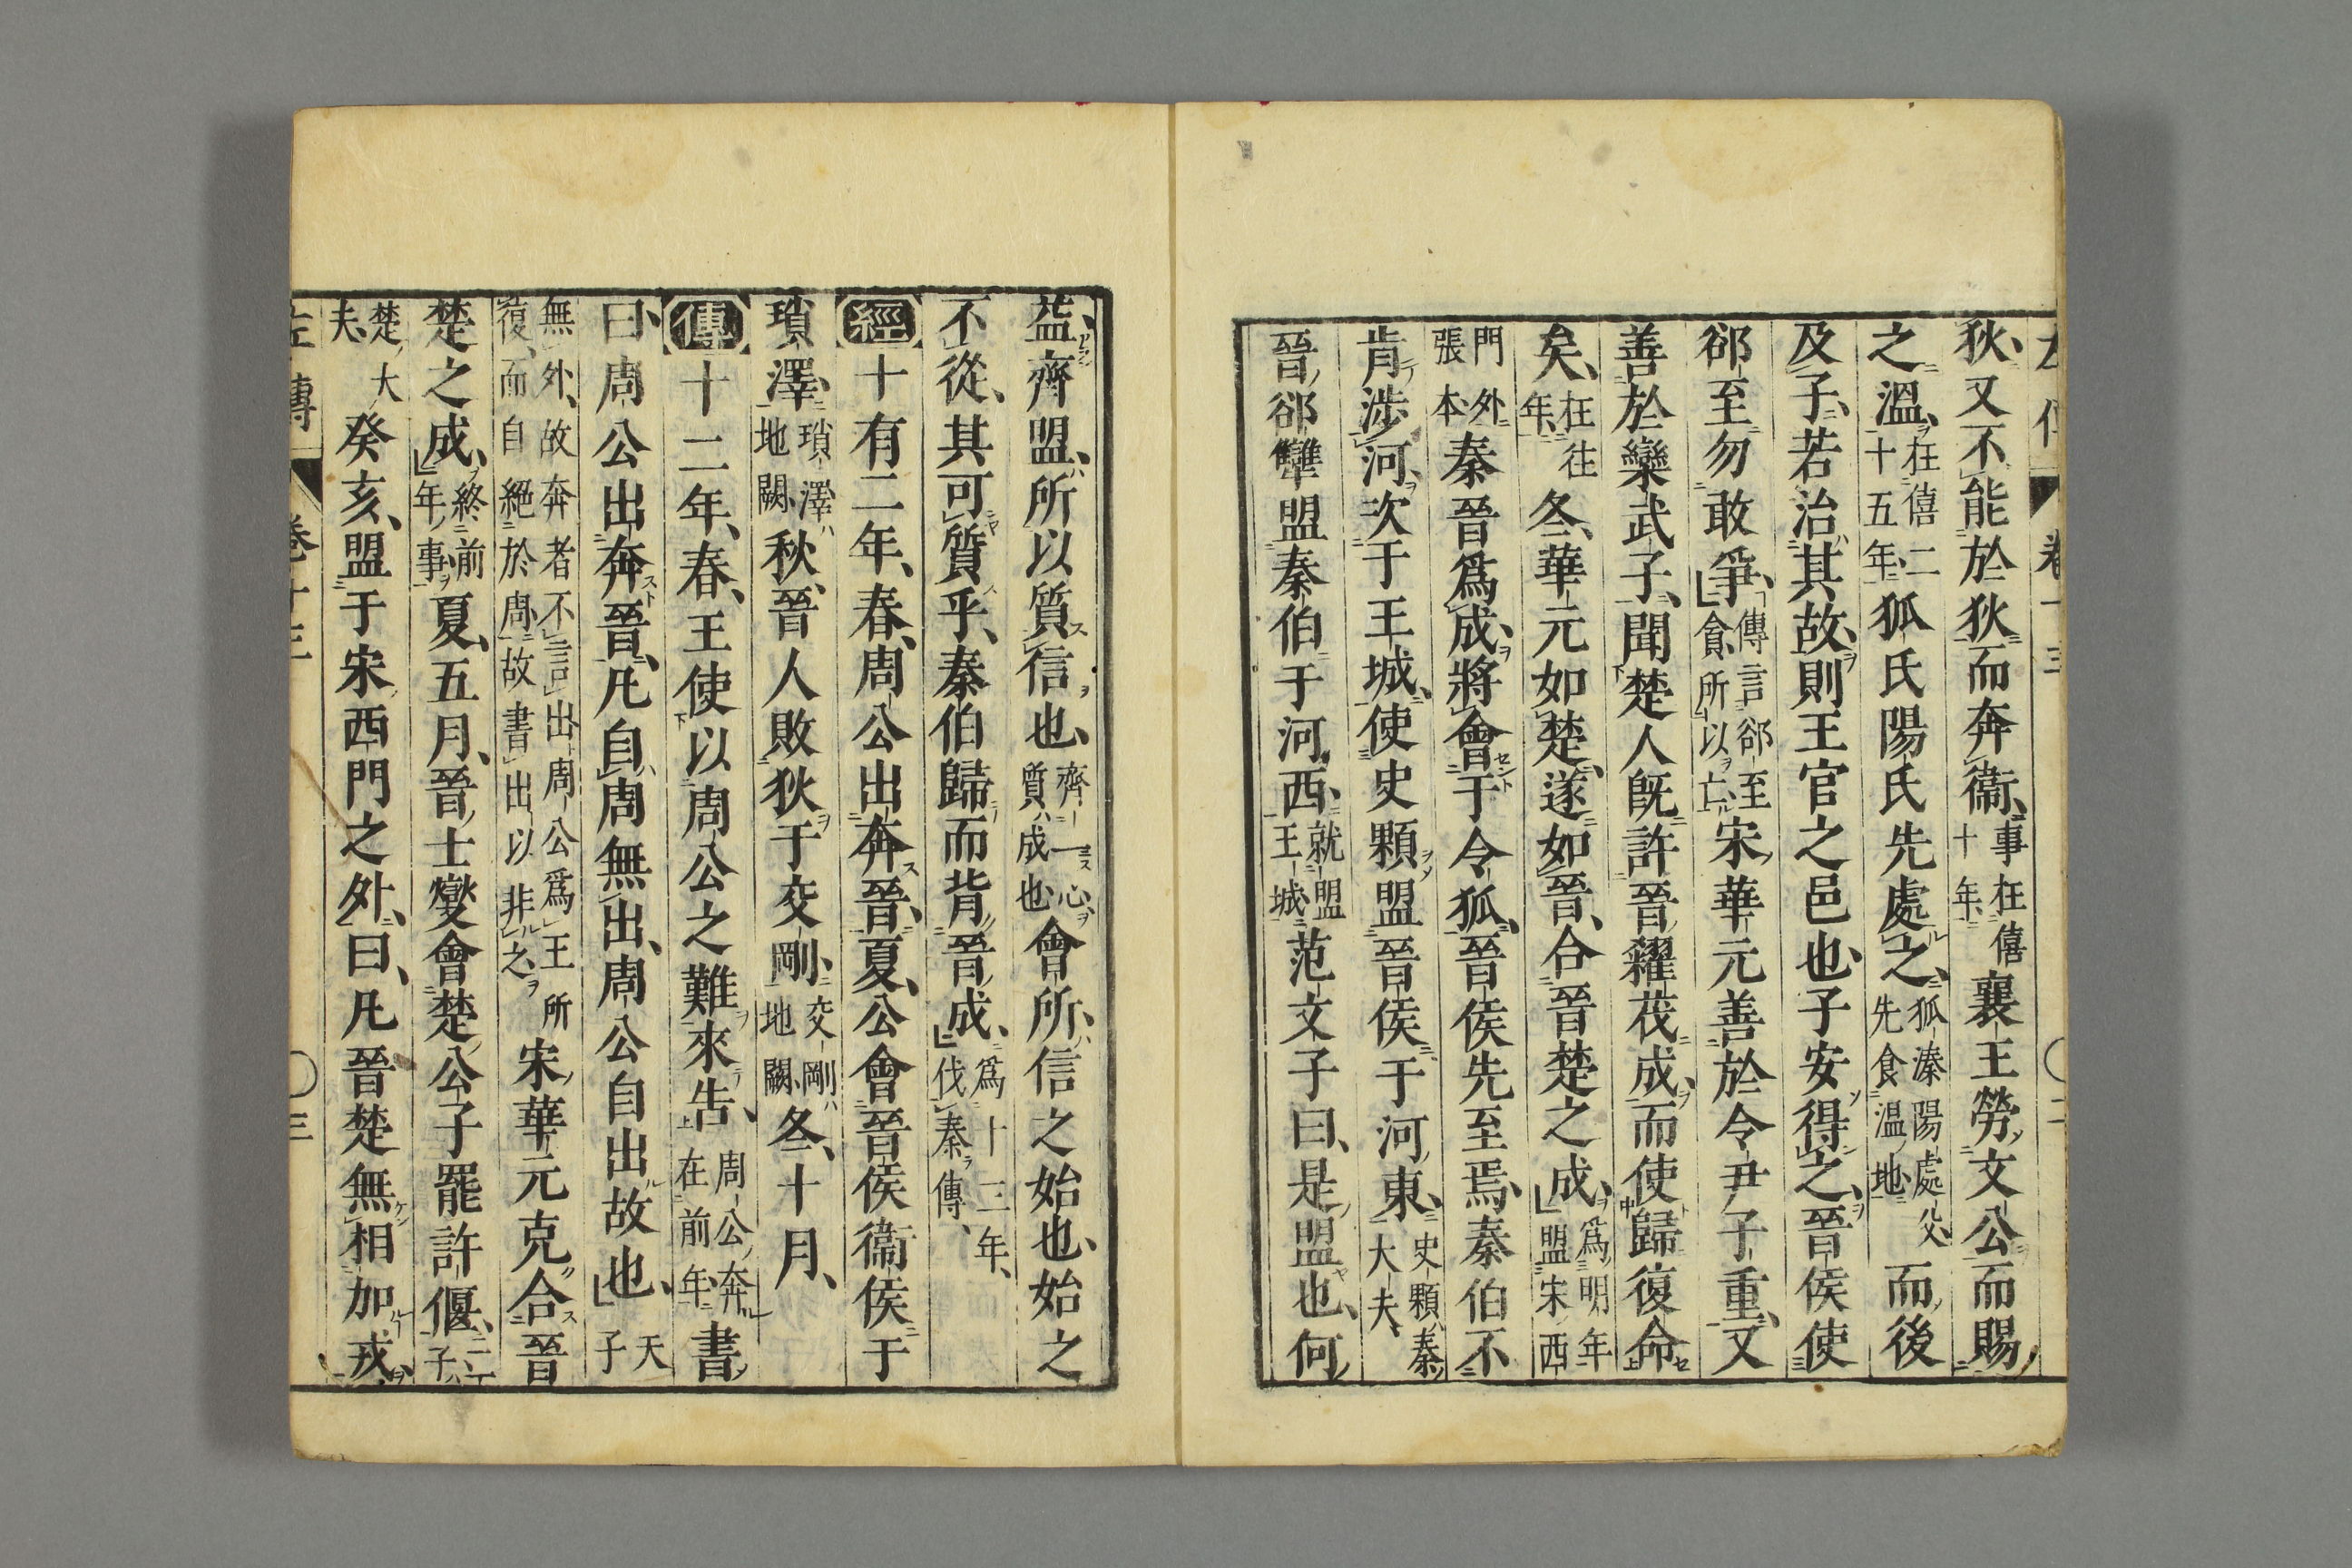 左傳 卷十三 〇 二
狄、又不能於狄而奔衞、事在僖十年、襄王勞文公而賜
之溫、在僖二十五年、狐氏陽氏先處之、狐溱陽處父先食溫地、而後
及子、若治其故、則王官之邑也、子安得之、晉侯使
郤至勿敢爭、傳言郤至貪所以亡、宋華元善於令尹子重、又
善於欒武子、聞楚人旣許晉糴茷成、而使歸復命
矣、在往年、冬、華元如楚、遂如晉、合晉楚之成、爲明年盟宋西
門外張本、秦晉爲成、將會于令狐、晉侯先至焉、秦伯不
肯涉河、次于王城、使史顆盟晉侯于河東、史顆、秦大夫、
晉郤犫盟秦伯于河西、就盟王城、范文子曰、是盟也、何
益、齊盟、所以質信也、齊一心質成也、會所、信之始也、始之
不從、其可質乎、秦伯歸而背晉成、爲十三年、伐秦傳、
經十有二年、春、周公出奔晉、夏、公會晉侯衞侯于
瑣澤、瑣澤地闕、秋、晉人敗狄于交剛、交剛地闕、冬、十月、
傳十二年、春、王使以周公之難來告、周公奔在前年、書
曰、周公出奔晉、凡自周無出、周公自出故也、天子
無外、故奔者不言出、周公爲王所復、而自絕於周、故書出以非之、宋華元克合晉
楚之成、終前年事、夏、五月、晉士燮會楚公子罷許偃、二子
楚大夫、癸亥、盟于宋西門之外、曰、凡晉楚無相加戎、
左傳 卷十三 〇 三